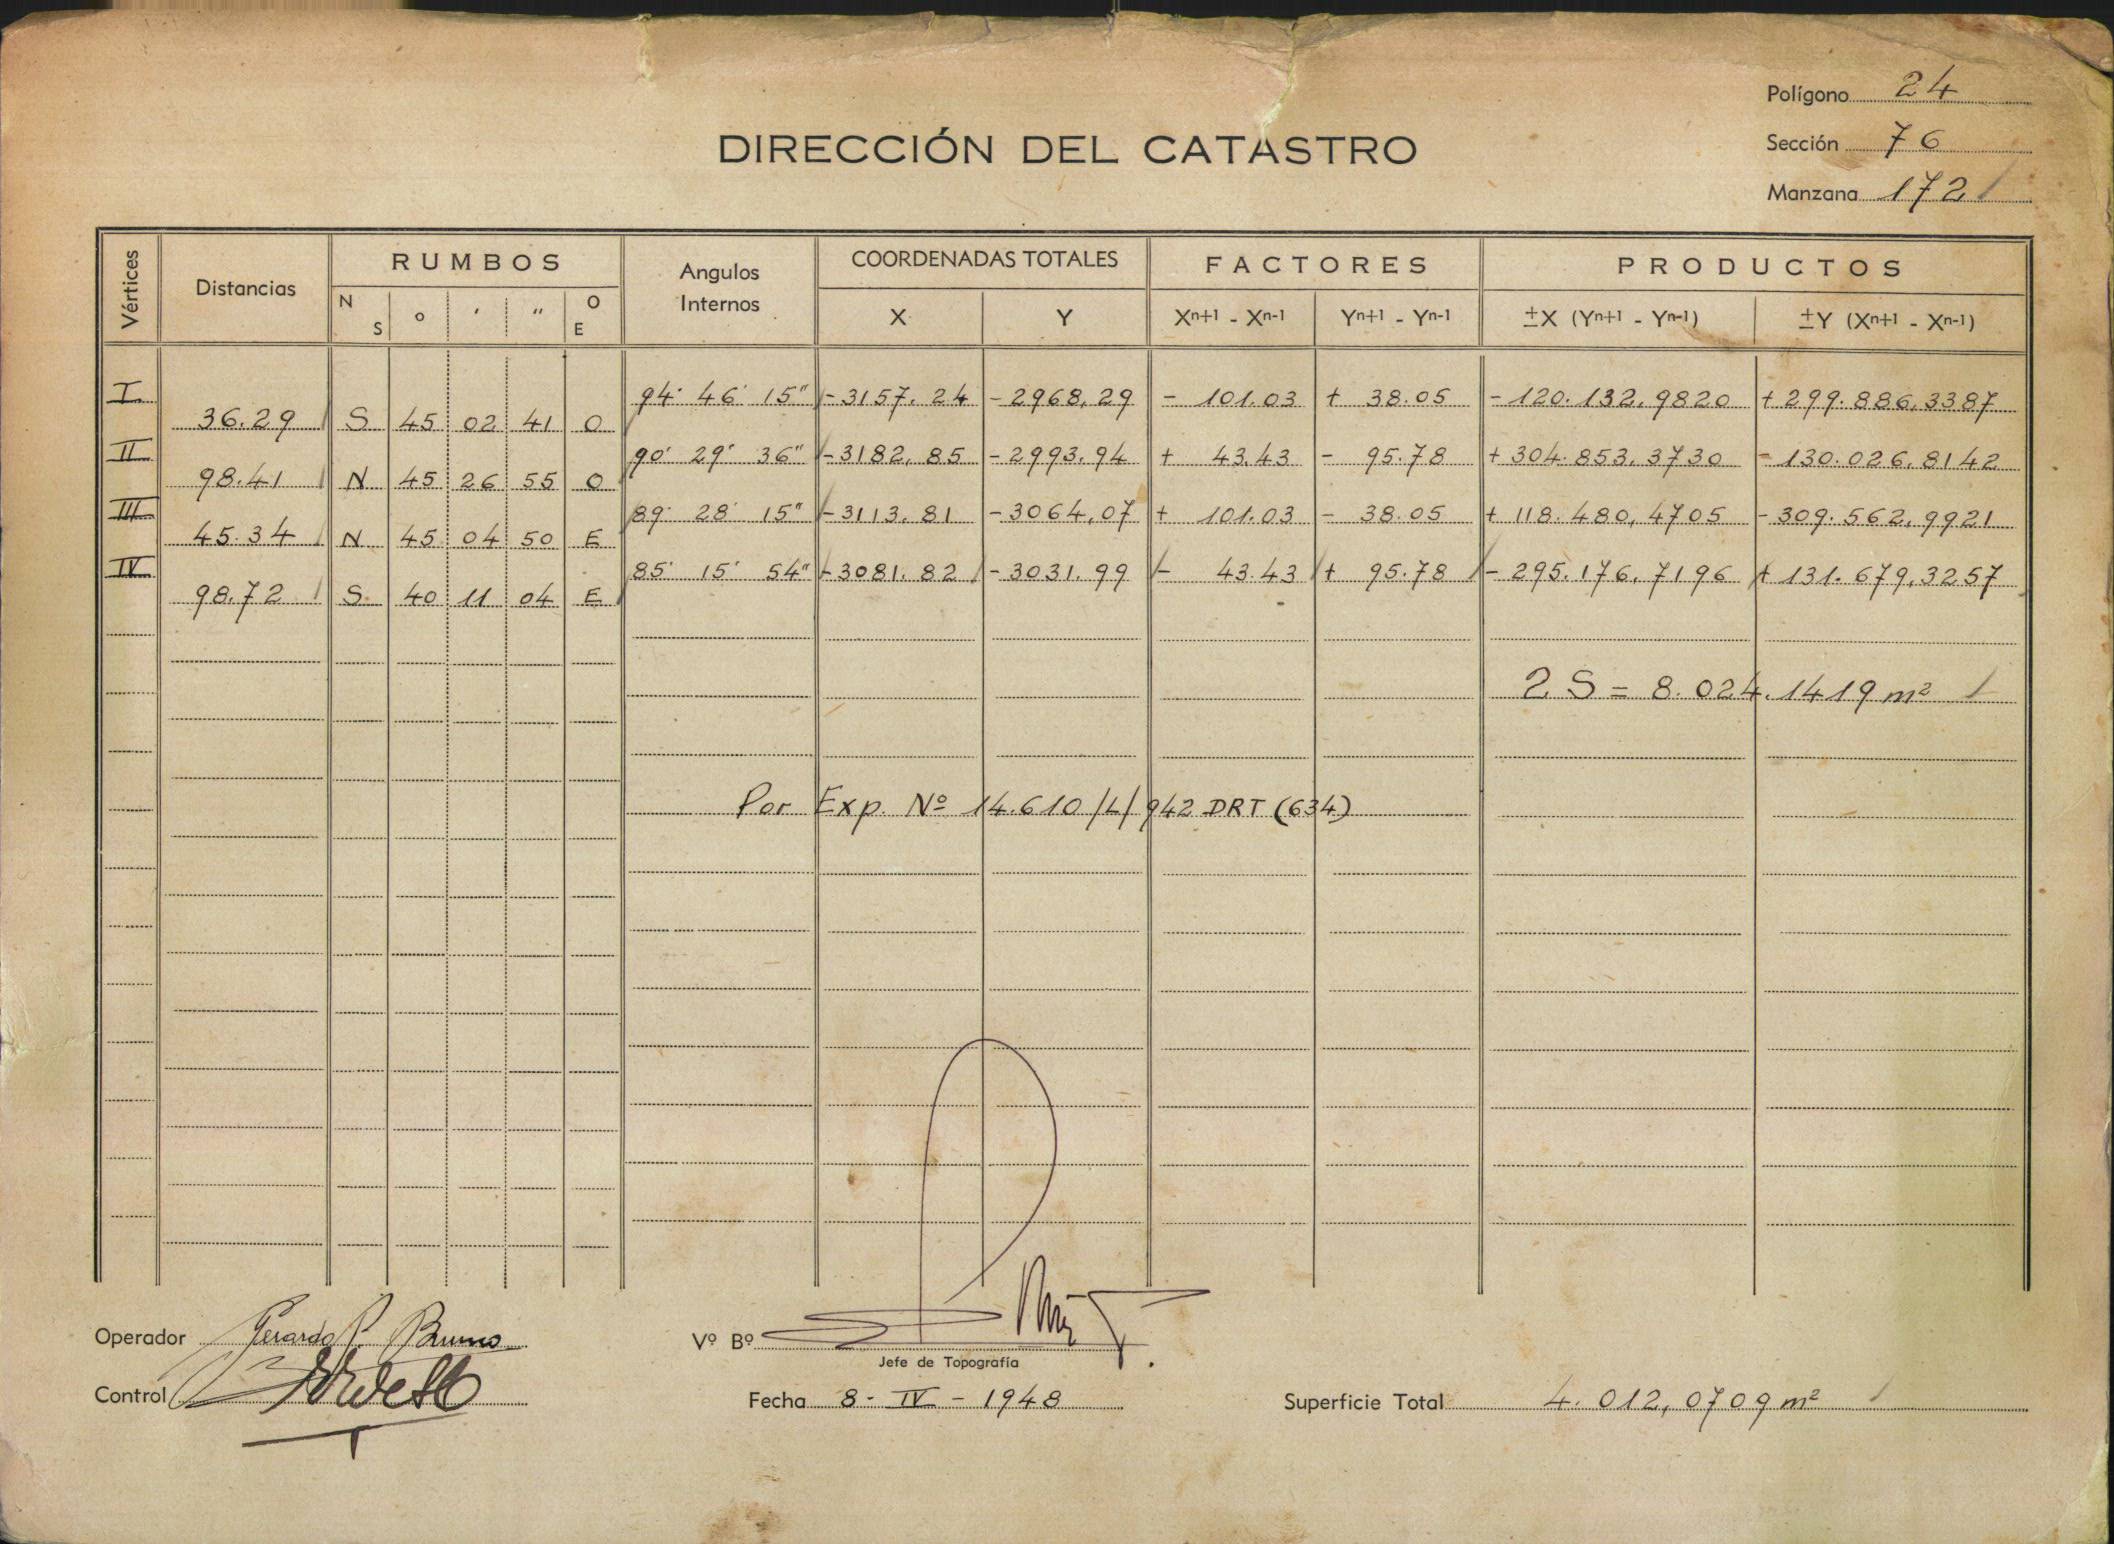 Polígono 24
DIRECCIÓN DEL CATASTRO
Sección 76
Manzana 172
Vértices Distancias RUMBOS Angulos Internos COORDENADAS TOTALES FACTORES PRODUCTOS
N S o ′ ″ O E X Y Xn+1 - Xn-1 Yn+1 - Yn-1 ±X (Yn+1 - Yn-1) ±Y (Xn+1 - Xn-1)
I 94° 46′ 15″ -3157.24 -2968,29 - 101.03 + 38.05 -120.132,9820 +299.886,3387
36.29 S 45 02 41 O
II 90° 29′ 36″ -3182,85 -2993,94 + 43.43 - 95.78 +304.853,3730 -130.026,8142
98.41 N 45 26 55 O
III 89° 28′ 15″ -3113.81 -3064,07 + 101.03 - 38.05 + 118.480,4705 -309.562,9921
45.34 N 45 04 50 E
IV 85° 15′ 54″ -3081.82 -3031.99 - 43.43 + 95.78 -295.176,7196 + 131.679,3257
98.72 S 40 11 04 E
2 S = 8.024.1419 m²
Por Exp. Nº 14.610/L/942 DRT (634)
Operador Gerardo P. Bruno Vº Bº
Jefe de Topografía
Control Fecha 8-IV-1948 Superficie Total 4.012,0709 m²